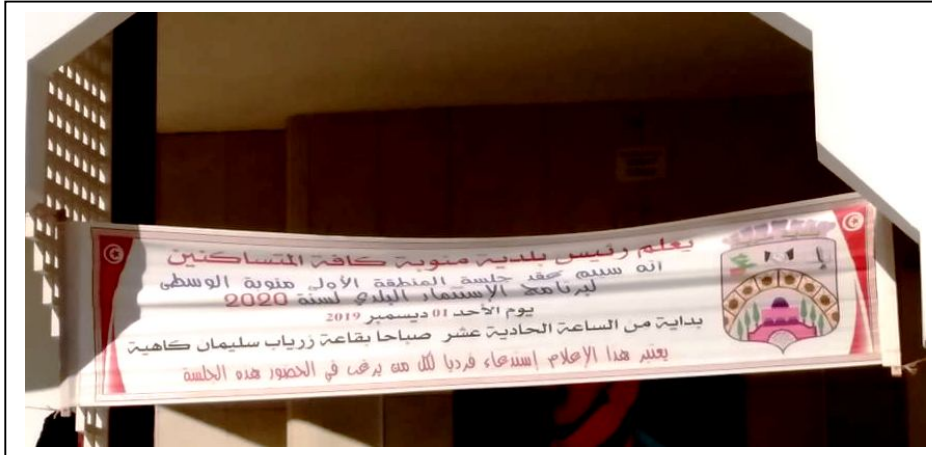 يعلم رئيس بلدية منوبة كافة المتساكنين
انه سيتم عقد جلسة المنطقة الأولى منوبة الوسطى
لبرنامج الإستثمار البلدي لسنة 2020
يوم الأحد 01 ديسمبر 2019
بداية من الساعة الحادية عشر صباحا بقاعة زرياب سليمان كاهية
يعتبر هذا الإعلام إستدعاء فرديا لكل من يرغب في الحضور هذه الجلسة